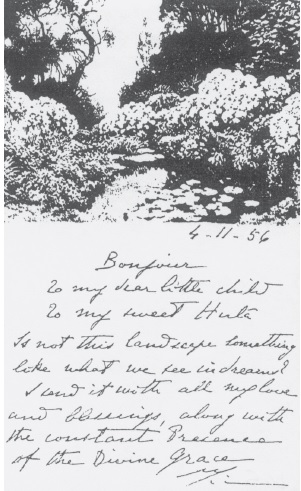 4-11-56
Bonjour
To my dear little child
To my sweet Huta
Is not this landscape something
like what we see in dreams?
I send it with all my love
and blessings, along with
the constant Presence
of the Divine Grace